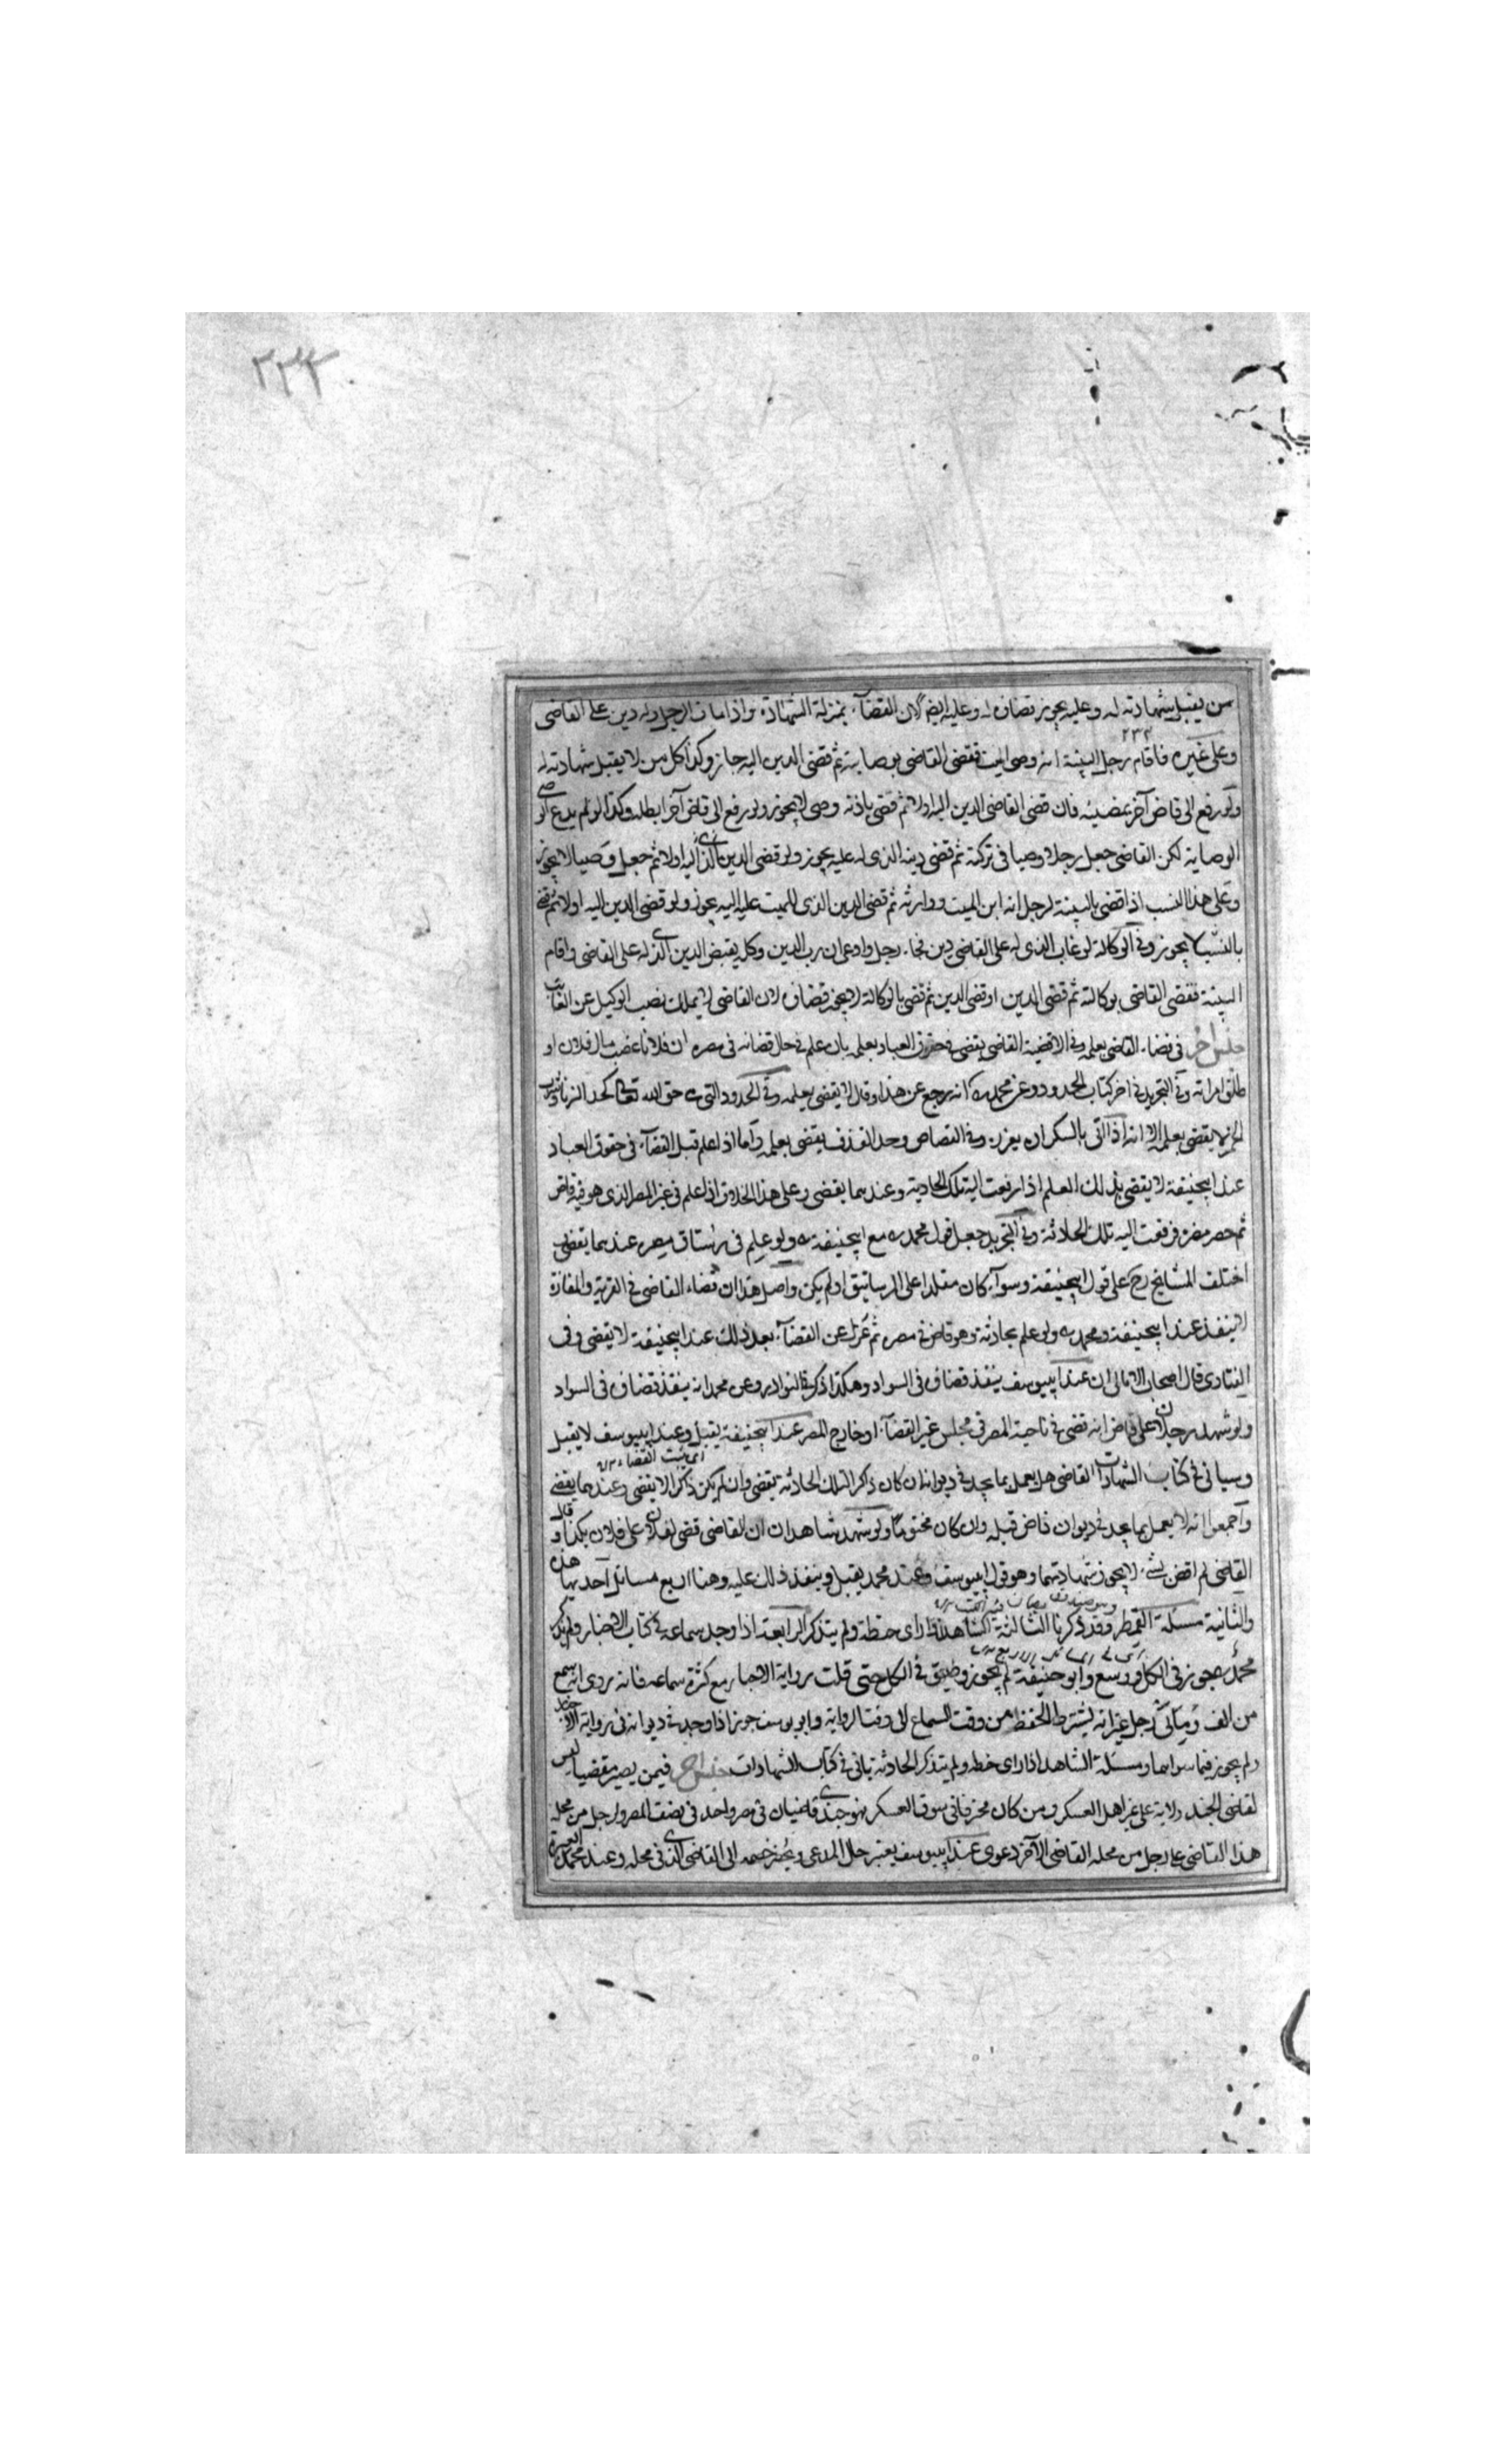 ٢٣٤
من يقبل شهادته له وعليه يجوز قضاؤه له وعليه ايضا لان القضاء بمنزلة الشهادة واذا مات الرجل وله دين على القاضي
٢٣٣
وعلى غيره فاقام رجل البينة انه وصي الميت فقضى القاضي بوصايته ثم قضى الدين اليه جاز وكذا كل من لا يقبل شهادته له
ولو رفع الى قاض آخر يمضيه فان قضى القاضي الدين اليه اولا ثم قضى بانه وصي لا يجوز ولو رفع الى قاض آخر ابطله وكذا لو لم يدع الوصي
الوصاية لكن القاضي جعل رجلا وصيا في تركته ثم قضى دينه الذي له عليه يجوز ولو قضى الدين الذي اليه اولا ثم جعل وصيا لا يجوز
وعلى هذا النسب اذا قضى بالبينة لرجل انه ابن الميت ووارثه ثم قضى الدين الذي للميت عليه اليه يجوز ولو قضى الدين اليه اولا ثم قضى
بالنسب لا يجوز وفي الوكالة لو غاب الذي له على القاضي دين فجاء رجل وادعى ان رب الدين وكله بقبض الدين الذي له على القاضي واقام
البينة فقضى القاضي بوكالته ثم قضى الدين او قضى الدين ثم قضى بالوكالة لا يجوز قضاؤه لان القاضي لا يملك نصب الوكيل عن الغائب
جنس آخر في قضاء القاضي بعلمه وفي الاقضية القاضي يقضي في حقوق العباد بعلمه بان علم في حال قضائه في مصره ان فلانا غصب مال فلان او
طلق امراته وفي التجريد في اخر كتاب الحدود وعن محمد انه رجع عن هذا وقال لا يقضي بعلمه وفي الحدود التي هي حق الله تعالى كحد الزنا وشرب
الخمر لا يقضي بعلمه الا انه اذا اتى بالسكران يعزره وفي القصاص وحد القذف يقضي بعلمه واما اذا علم قبل القضاء في حقوق العباد
عند ابيحنيفة لا يقضي بذلك العلم اذا رفعت اليه تلك الحادثة وعندهما يقضي وعلى هذا الخلاف اذا علم في غير المصر الذي هو فيه قاض
ثم حضر مصره فرفعت اليه تلك الحادثة وفي التجريد جعل قول محمد مع ابيحنيفة ولو علم في رستاق مصره عندهما يقضي
اختلف المشايخ رح على قول ابيحنيفة وسواء كان مقلدا على الرساتيق او لم يكن واصل هذا ان قضاء القاضي في القرية والمفازة
لا ينفذ عند ابيحنيفة ومحمد ولو علم بحادثة وهو قاض في مصره ثم عزل عن القضاء بعد ذلك عند ابيحنيفة لا يقضي وفي
الفتاوى قال اصحاب الامالي ان عند ابييوسف ينفذ قضاؤه في السواد وهكذا ذكر في النوادر وعن محمد انه ينفذ قضاؤه في السواد
ولو شهد رجلان على قاض انه قضى في ناحية المصر في مجلس غير القضاء او خارج المصر عند ابيحنيفة يقبل وعند ابييوسف لا يقبل
وسياتي في كتاب الشهادات القاضي هل يعمل بما يجد في ديوانه ان كان ذاكرا لتلك الحادثة يقضي وان لم يكن ذاكرا لا يقضي وعندهما يقضي
واجمعوا انه لا يعمل بما يجد في ديوان قاض قبله وان كان مختوما ولو شهد شاهدان ان القاضي قضى لفلان على فلان بكذا وقال
القاضي لم اقض بشيء لا يجوز شهادتهما وهو قول ابييوسف وعند محمد يقبل وينفذ ذلك عليه وهنا اربع مسائل احديها هذه
والثانية مسئلة القمطر وقد ذكرنا الثالثة الشاهد اذا راى خطه ولم يتذكر الرابعة اذا وجد سماعه في كتاب الاخبار ولم يذكر
محمد يجوز في الكل ووسع وابو حنيفة لم يجوز وضيق في الكل حتى قلت رواية الاخبار مع كثرة سماعه فانه روى انه سمع
من الف ومائتي رجل غير انه يشترط الحفظ من وقت السماع الى وقت الرواية وابو يوسف جوز اذا وجد في ديوانه في رواية الاخبار
ولم يجوز فيما سواهما ومسئلة الشاهد اذا راى خطه ولم يتذكر الحادثة ياتي في كتاب الشهادات جنس آخر فيمن يصير مقضيا ليس
لقاضي الجند ولاية على غير اهل العسكر ومن كان محترفا في سوق العسكر فهو جندي قاضيان في مصر واحد في نصف المصر ولرجل من محلة
هذا القاضي على رجل من محلة القاضي الآخر دعوى عند ابييوسف يعتبر حال المدعي ويحضر خصمه الى القاضي الذي في محلته وعند محمد العبرة